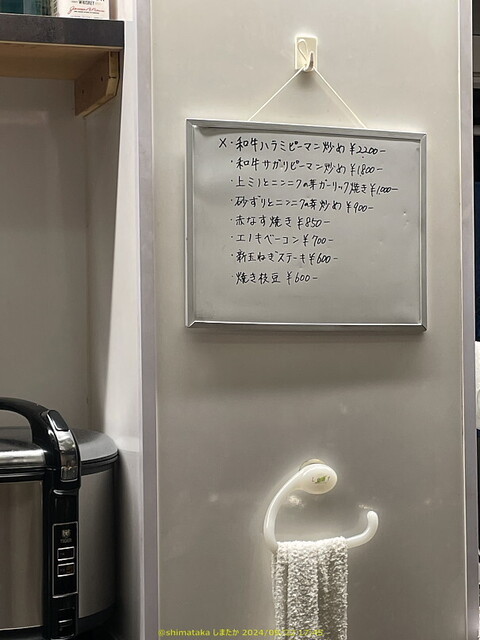 WHISKEY
×・和牛ハラミピーマン炒め ¥2200-
・和牛サガリピーマン炒め ¥1800-
・上ミノとニンニクの芽ガーリック焼き ¥1000-
・砂ずりとニンニクの芽炒め ¥900-
・赤なす焼き ¥850-
・エノキベーコン ¥700-
・新玉ねぎステーキ ¥600-
・焼き枝豆 ¥600-
@shimataka しまたか 2024/